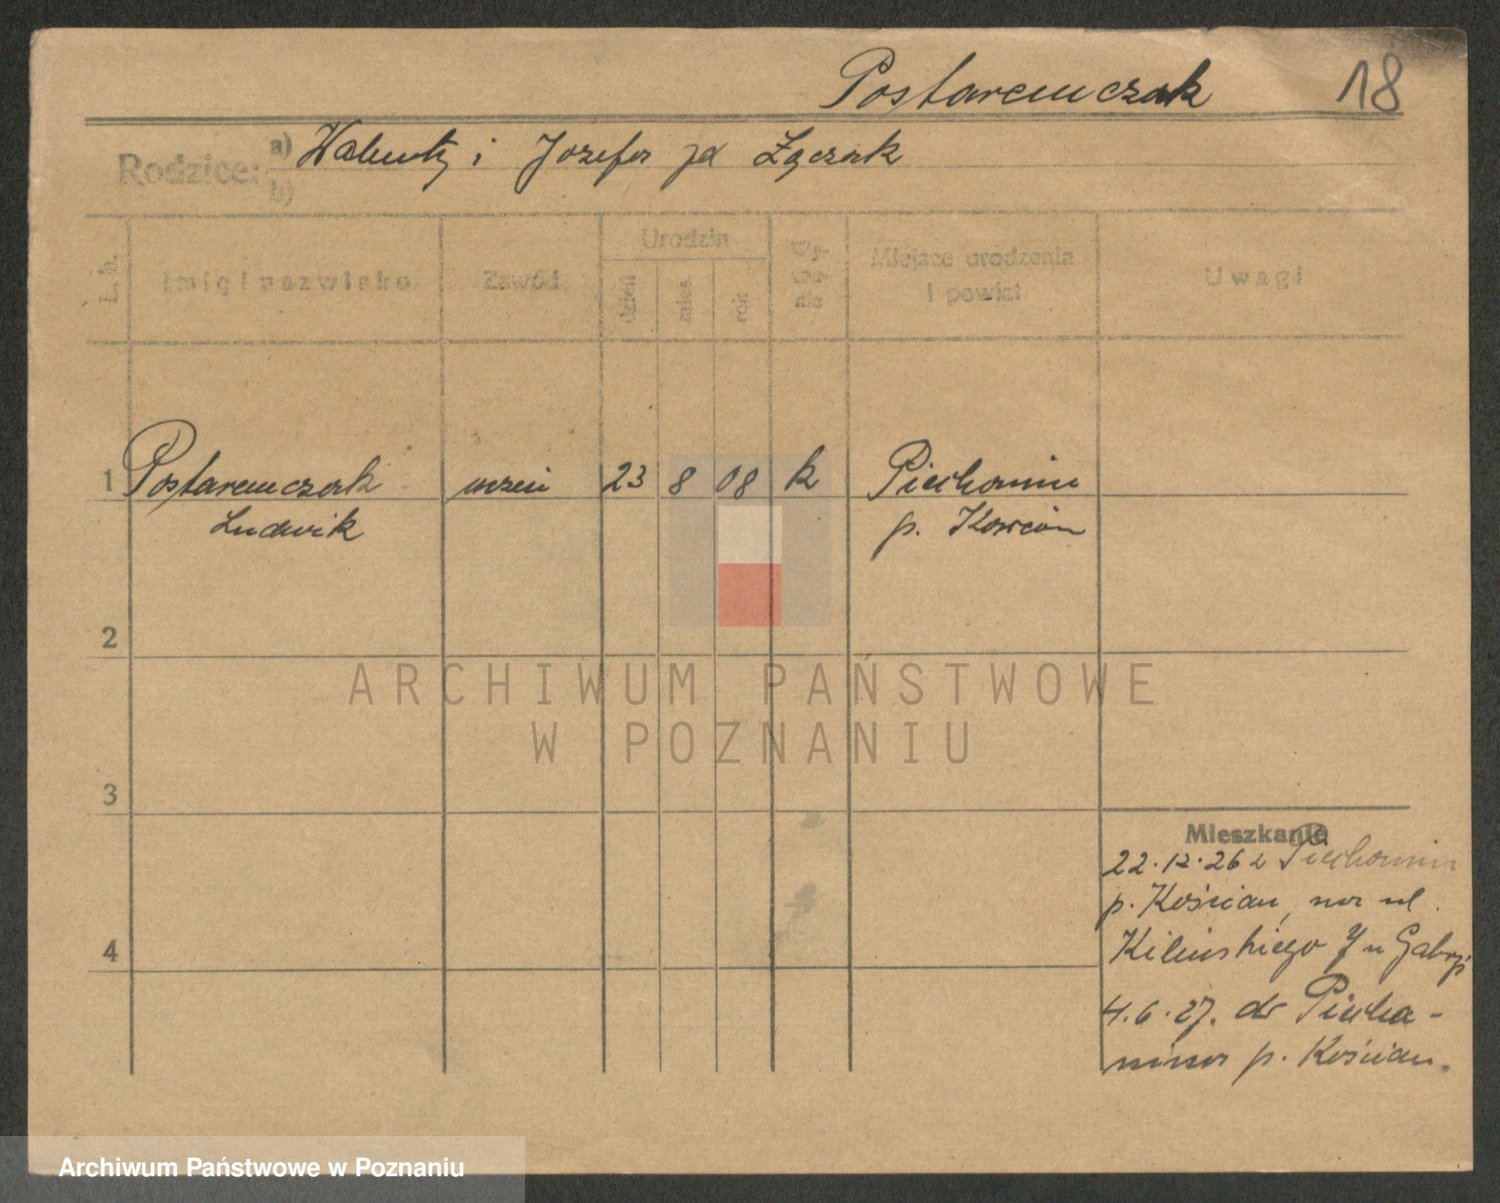 Postaremczak 18
Rodzice: a) Walenty i Jozefa zd Łączak
b)
L. b.
Imię i nazwisko
Zawód
Urodzin
dzień
mies.
rok
Miejsce urodzenia
i powiat
Uwagi
1 Postaremczak uczeń 23 8 08 k Piechanin
Ludwik p. Kościan
2
ARCHIWUM PAŃSTWOWE
W POZNANIU
3
Mieszkanie
22.12.26 z Piechanin
p. Kościan, na ul.
Kilinskiego 7 u Gabryś
4
4.6.27. do Piecha-
nina p. Kościan.
Archiwum Państwowe w Poznaniu